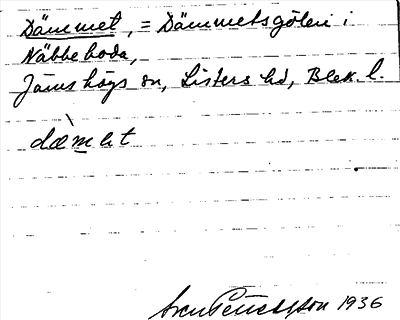 Dämmet, = Dämmetsgölen i
Näbbeboda,
Jämshögs sn, Listers hd, Blek. l.
dæ̀m̲ət
Sven Benedktson 1936